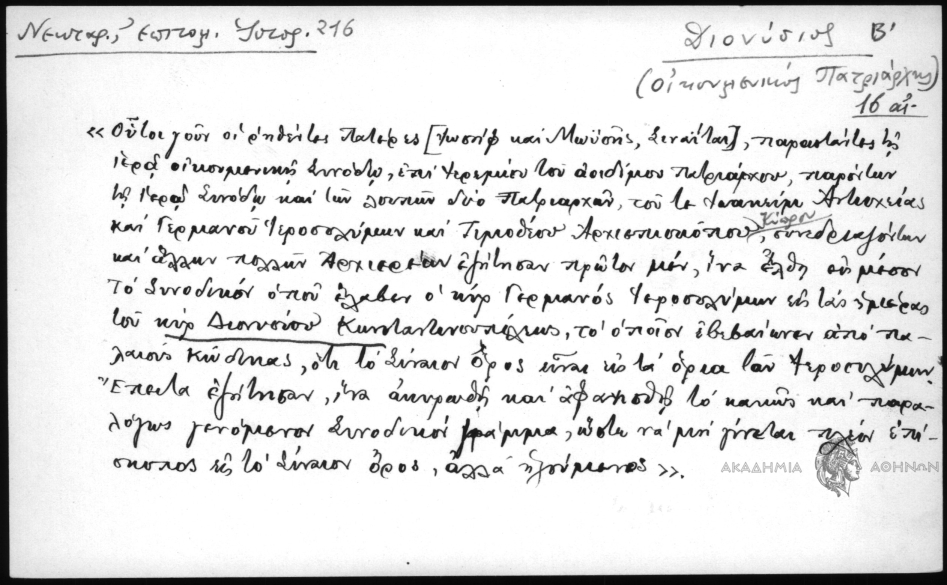 Νεκταρ., Ἐπιτομ. Ἱστορ. 216
Διονύσιος Β'
(Οἰκουμενικός Πατριάρχης)
16 αἰ.
«Οὗτοι γοῦν οἱ ῥηθέντες Πατέρες [Ἰωσήφ καί Μωϋσῆς, Σιναῖται], παραστάντες τῇ
ἱερᾷ οἰκουμενικῇ Συνόδῳ, ἐπί Ἱερεμίου τοῦ ἀοιδίμου Πατριάρχου, παρόντων
τῇ Ἱερᾷ Συνόδῳ καί τῶν λοιπῶν δύο Πατριαρχῶν, τοῦ τε Ἰωακείμ Ἀντιοχείας
καί Γερμανοῦ Ἱεροσολύμων καί Τιμοθέου Ἀρχιεπισκόπου Κύπρου, συνεδριαζόντων
καί ἄλλων πολλῶν Ἀρχιερέων ἐζήτησαν πρῶτον μέν, ἵνα ἔλθῃ εἰς μέσον
τό Συνοδικόν ὁποῦ ἔλαβεν ὁ κύρ Γερμανός Ἱεροσολύμων εἰς τάς ἡμέρας
τοῦ κύρ Διονυσίου Κωνσταντινουπόλεως, τό ὁποῖον ἐβεβαίωνεν ἀπό πα-
λαιούς Κώδικας, ὅτι τό Σίναιον Ὄρος εἶναι εἰς τά ὅρια τῶν Ἱεροσολύμων.
Ἔπειτα ἐζήτησαν, ἵνα ἀκυρωθῇ καί ἀφανισθῇ τό κακῶς καί παρα-
λόγως γενόμενον Συνοδικόν γράμμα, ὥστε νά μή γίνεται πλέον ἐπί-
σκοπος εἰς τό Σίναιον ὄρος, ἀλλά ἡγούμενος».
ΑΚΑΔΗΜΙΑ ΑΘΗΝΩΝ